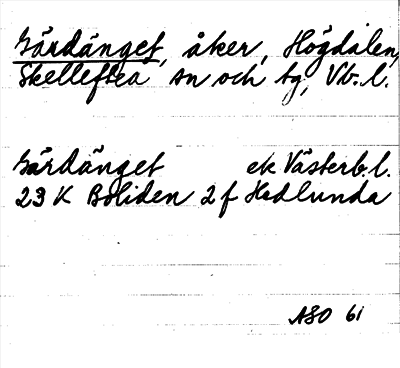 Gärdänget, åker, Högdalen,
Skellefteå sn och tg, Vb.l.
Gärdänget ek Västerb.l.
23 K Boliden 2 f Hedlunda
ASO 61